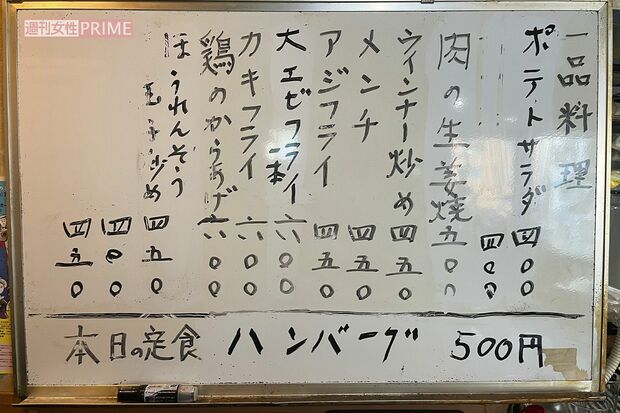 週刊女性PRIME
一品料理
ポテトサラダ 四〇〇
四〇〇
肉の生姜焼 五〇〇
ウィンナー炒め 四五〇
メンチ 四五〇
アジフライ 四五〇
大エビフライ 一本 六〇〇
カキフライ 六〇〇
鶏のからあげ 六〇〇
ほうれんそう
玉子炒め 四五〇
四〇〇
四五〇
本日の定食 ハンバーグ 500円